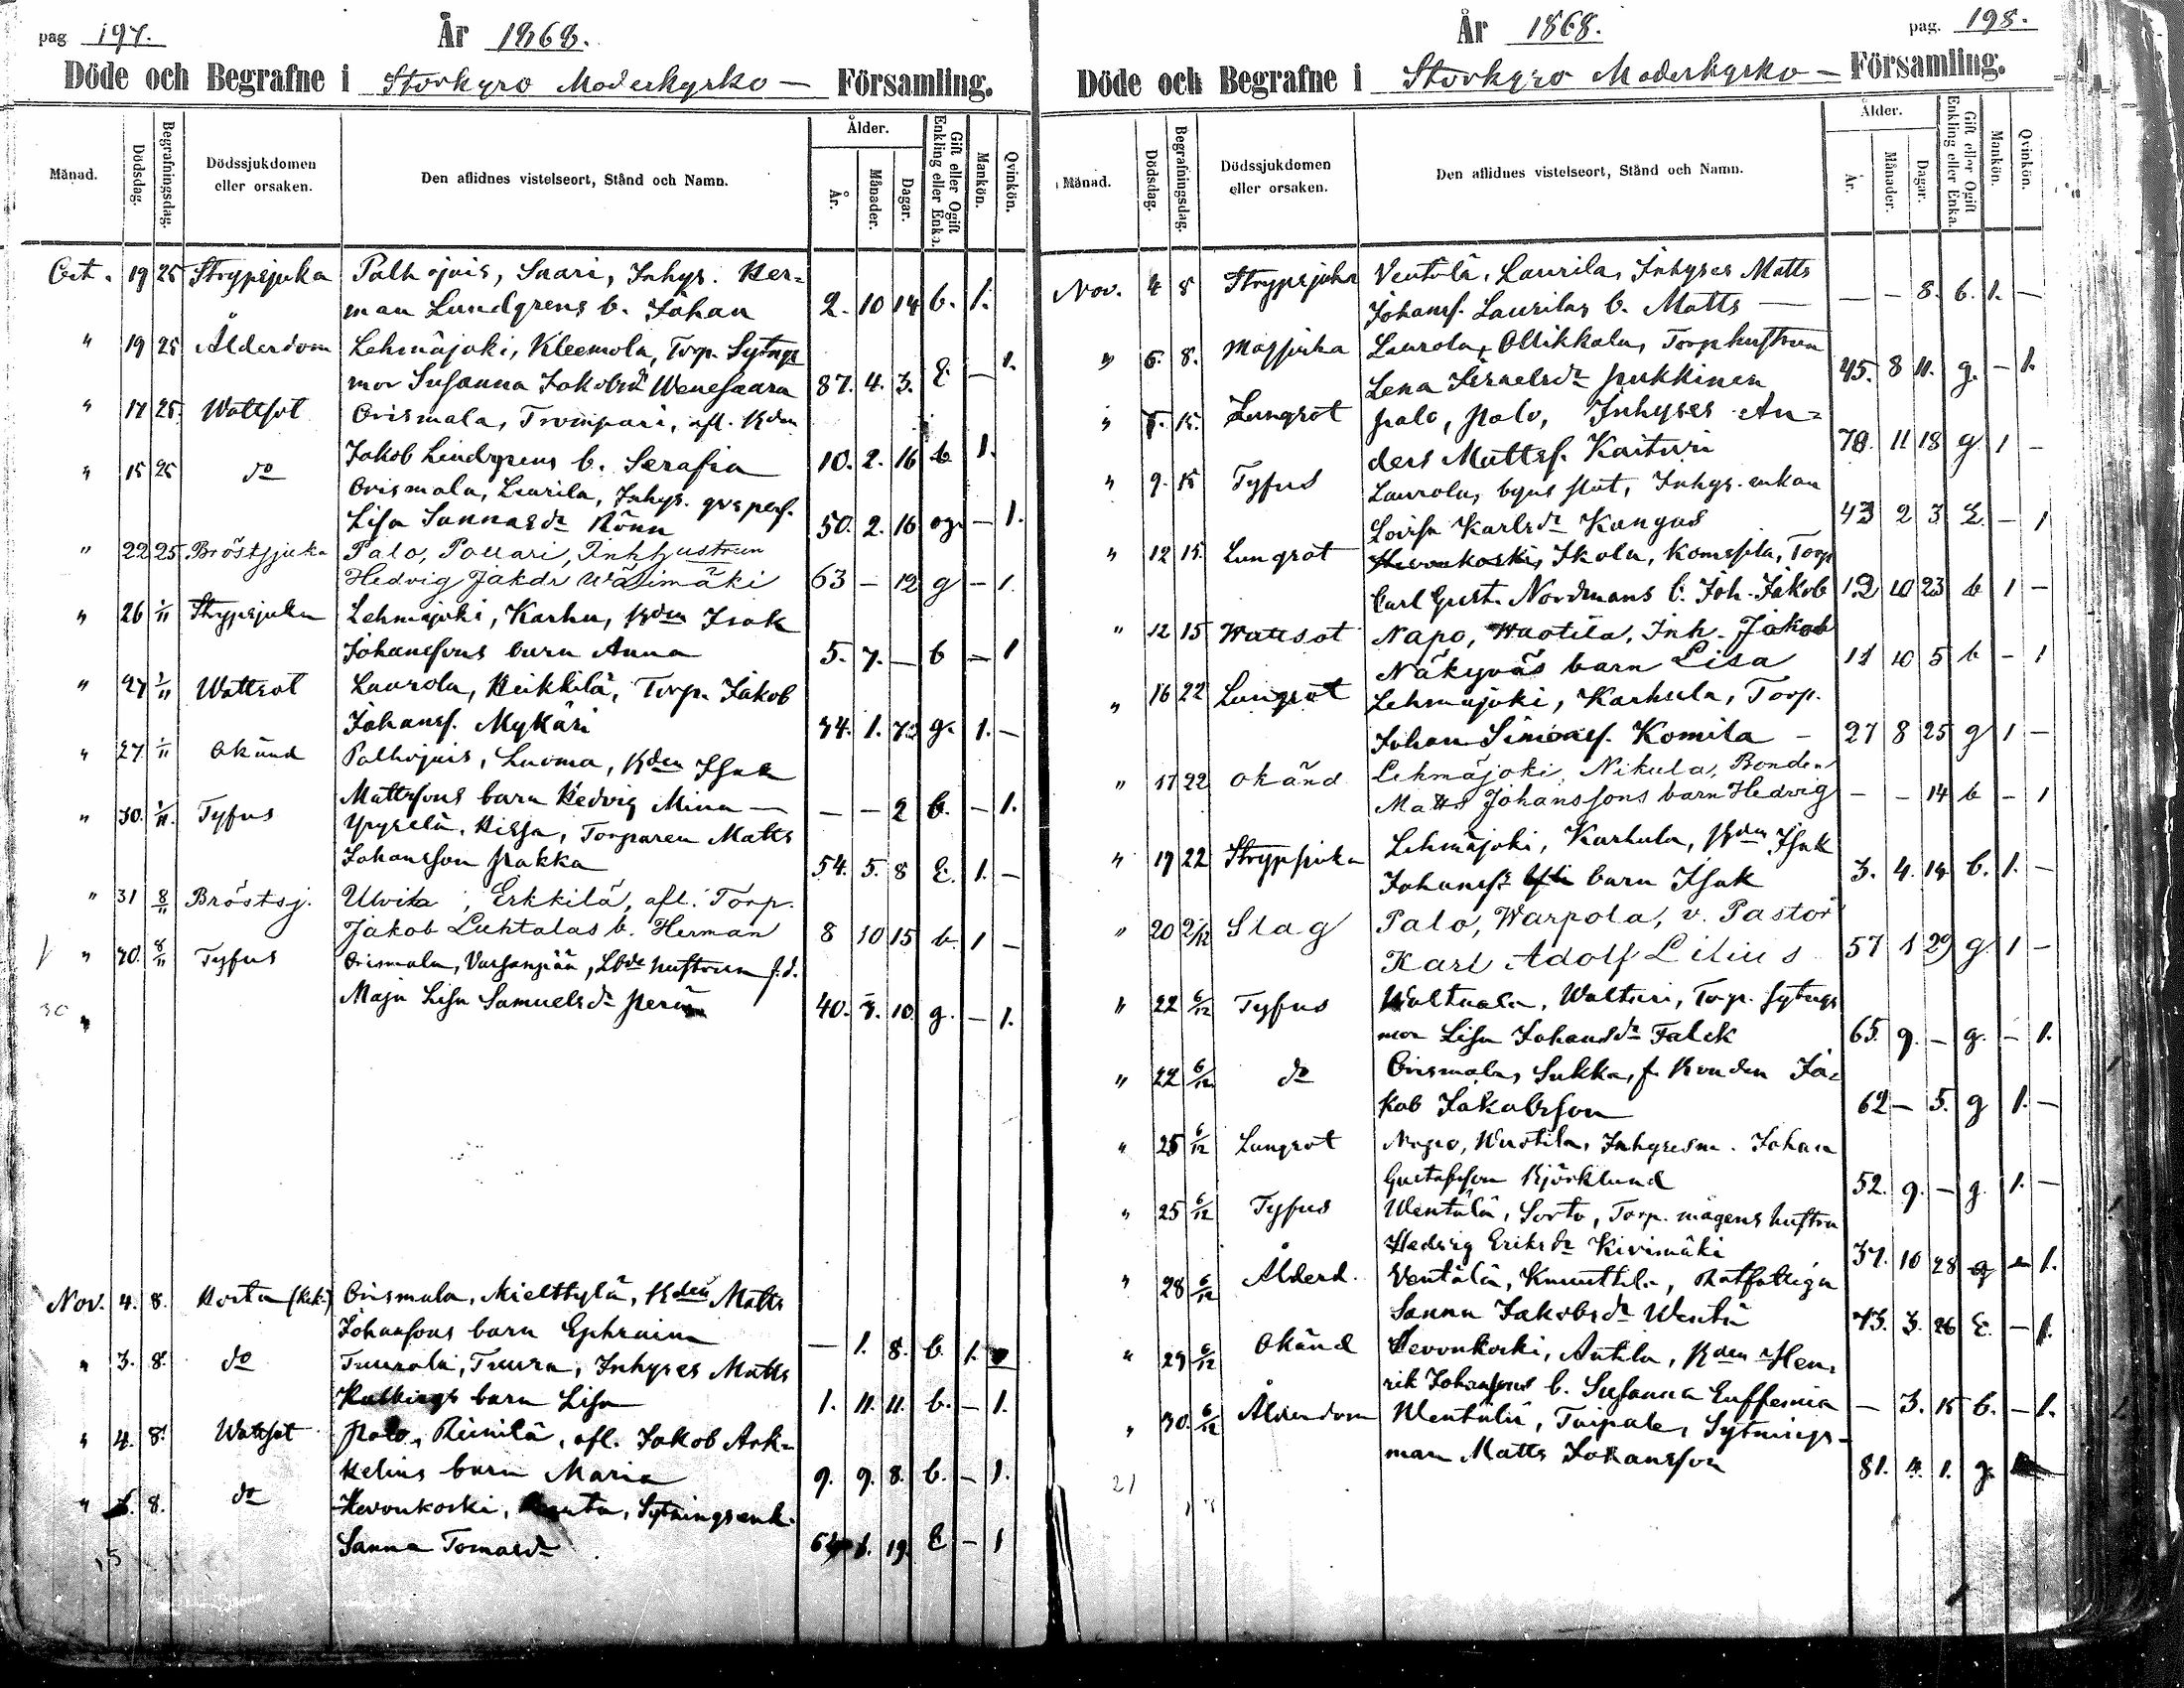 pag 197.
År 1868.
Döde och Begrafne i Storkyro Moderkyrko — Församling.
Månad.
Dödsdag.
Begrafningsdag.
Dödssjukdomen eller orsaken.
Den aflidnes vistelseort, Stånd och Namn.
Ålder.
År.
Månader.
Dagar.
Gift eller Ogift Enkling eller Enka.
Mankön.
Qvinkön.
Oct. 19 25 Strypsjuka Palhojais, Saari, Inhys. Her-
man Lundgrens b. Johan 2. 10 14 b. 1.
" 19 25 Ålderdom Lehmäjoki, Kleemola, Torp. Sytngs
mor Susanna Jakobsdr Wenesaara 87. 4. 3. E. — 1.
" 17 25. Wattsot Orismala, Trompari, afl. Bdn
Jakob Lindgrens b. Serafia 10. 2. 16 b 1.
" 15 25 do Orismala, Laurila, Inhys. qvspers.
Lisa Sannasdr Rönn 50. 2. 16 og. — 1.
" 22 25 Bröstsjuka Palo, Pollari, Inhhustrun
Hedvig Jakdr Wälimäki 63 — 12 g — 1.
" 26 1/11 Strypsjuka Lehmäjoki, Karhu, Bden Isak
Johanssons barn Anna 5. 7. — b — 1
" 27 1/11 Wattsot Laurola, Heikkilä, Torp. Jakob
Johanss. Mykäri 44. 1. g. 1. —
" 27. 1/11 Okänd Palhojais, Luoma, Bden Isak
Mattssons barn Hedvig Mina — — — 2 b. — 1.
" 30. 1/11. Tyfus Ypyselä, Hissa, Torparen Matts
Johansson Pakka 54. 5. 8 E. 1. —
" 31 8/11 Bröstsj. Ulvila, Erkkilä, afl. Torp.
Jakob Luhtalas b. Herman 8 10 15 b. 1 —
" 30. 8/11 Tyfus Orismala, Hustrun f.d.
Maja Lisa Samuelsdr 40. 3. 10. g. — 1.
30
Nov. 4. 8. Hosta (kik.) Orismala, Mielttylä, Bden Matts
Johanssons barn Ephraim — 1. 8. b. 1.
" 3. 8. do Tuurala, Tuura, Inhyses Matts
barn Lisa 1. 11. 11. b. — 1.
" 4. 8. Wattsot Palo, Riinilä, afl. Jakob Ark-
kelins barn Maria 9. 9. 8. b. — 1.
" 8. do Hevonkoski, Sytningsenk.
Sanna Tomasdr 19. E — 1
15
pag. 198.
År 1868.
Döde och Begrafne i Storkyro Moderkyrko — Församling.
Månad.
Dödsdag.
Begrafningsdag.
Dödssjukdomen eller orsaken.
Den aflidnes vistelseort, Stånd och Namn.
Ålder.
År.
Månader.
Dagar.
Gift eller Ogift Enkling eller Enka.
Mankön.
Qvinkön.
Nov. 4 8 Strypsjuka Ventälä, Laurila, Inhyses Matts
Johanss. Laurilas b. Matts — — — 8. b. 1. —
" 5. 8. Magsjuka Laurola, Ollikkala, Torphustrun
Lena Israelsdr Pukkinen 45. 8 11. g. — 1.
" 15. Lungrot Palo, Palo, Inhyses An-
ders Mattss. Kaituri 70. 11 18 g 1 —
" 9. 15 Tyfus Laurola, byns Inhys. enkan
Lovisa Karlsdr Kangas 43 2 3 E. — 1
" 12 15. Lungrot Skola, Torp
Carl Gust. Nordmans b. Joh. Jakob 12 10 23 b 1 —
" 12 15 Wattsot Napo, Waotila, Inh. Jakob
Näkyväs barn Lisa 11 10 5 b — 1
" 16 22 Lungrot Lehmäjoki, Karhula, Torp.
Johan Simonss. Komila — 27 8 25 g 1 —
" 17 22 Okänd Lehmäjoki, Nikula, Bonden
Matts Johanssons barn Hedvig — — 14 b — 1
" 19 22 Strypsjuka Lehmäjoki, Karhula, Bden Isak
Johanss barn Isak 3. 4. 14 b. 1. —
" 20 2/12 Slag Palo, Warpola, v. Pastor
Karl Adolf Lilius 57 1 29 g 1 —
" 22 6/12 Tyfus Walteri, Torp. Sytngs
mor Lisa Johansdr Falck 65. 9. — g. — 1.
" 22 6/12 do Orismala, Sukka, f. Bonden Ja-
kob Jakobsson 62 — 5. g 1. —
" 25 6/12 Lungrot Napo, Waotila, Inhysesm. Johan
Gustafsson Björklund 52. 9. — g. 1. —
" 25 6/12 Tyfus Wentälä, Sorto, Torp. mågens hustru
Hedvig Eriksdr Kivimäki 37. 10 28 g — 1.
" 28 6/12 Ålderd. Ventälä, Knuuttila, Rotfattiga
Sanna Jakobsdr Wentä 73. 3. 26 E. — 1.
" 29 6/12 Okänd Hevonkoski, Antila, Bden Hen-
rik Johanssons b. Susanna Euffemia — 3. 15 b. — 1.
" 30. 6/12 Ålderdom Wentälä, Taipale, Sytnings-
man Matts Johansson 81. 4. 1. g.
21